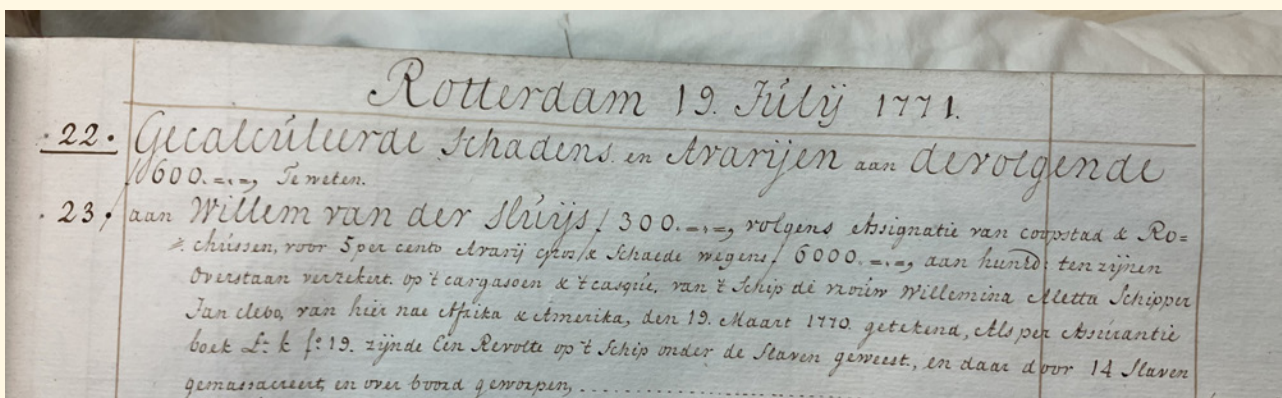 Rotterdam 19. Júlij 1771.
. 22 . Gecalcúleerde Schadens en Avarijen aan de volgende
ƒ 600.=.=, Te weten.
. 23, aan Willem van der Slúijs ƒ 300.=.=, volgens Assignatie van Coopstad & Ro=
chússen, voor 5 per cento Avarij gros & Schaede wegens ƒ 6000.=.=, aan hunEd: ten zijnen
Overstaan verzekert op 't cargasoen & 't casqúe, van 't Schip de vroúw Willemina Aletta Schipper
Jan Clebo, van hier nae Afrika & America, den 19. Maart 1770. getekend, Als per Assúrantie
boek Lr. k fo. 19. zijnde Een Revolte op 't Schip onder de Slaven geweest, en daar door 14 Slaven
gemassacreert, en over boord geworpen,